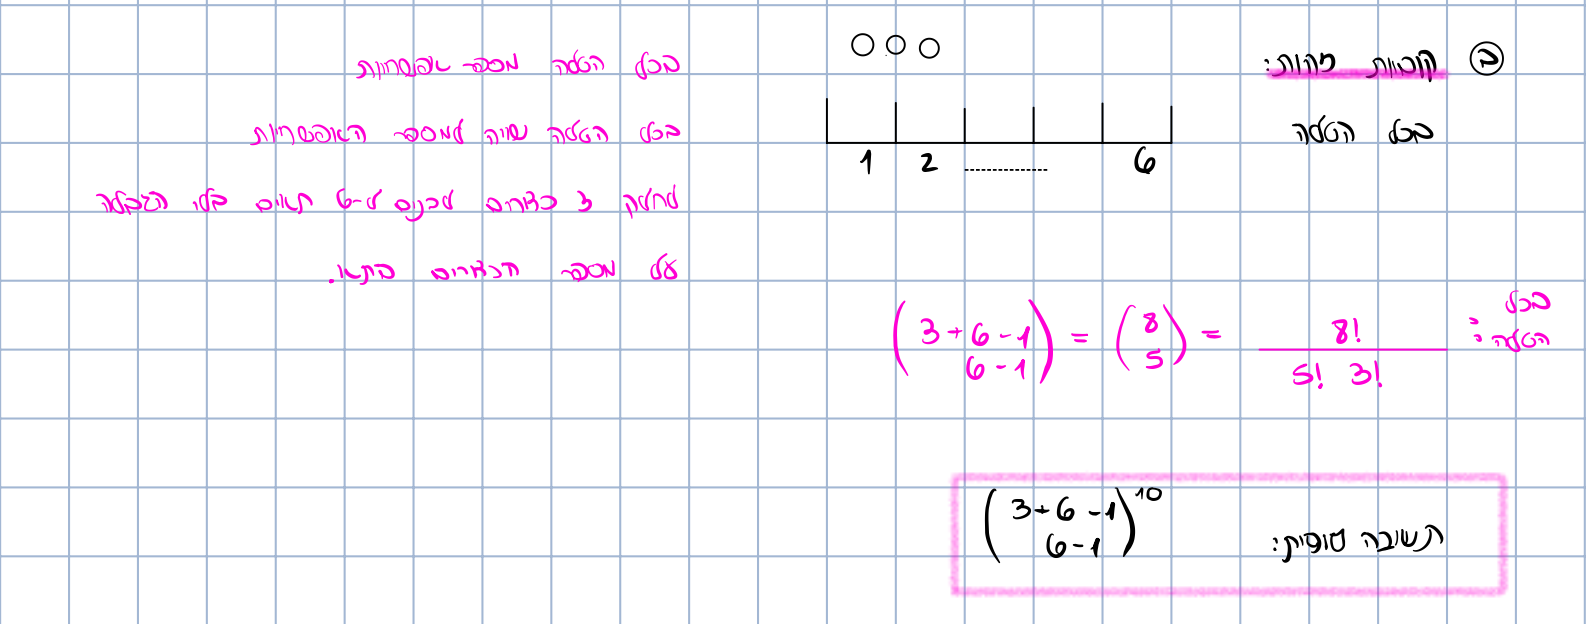 ב קוביות זהות:
בכל הטלה
1 2 ............ 6
בכל הטלה מספר אפשרויות
בכל הטלה שווה למספר האפשרויות
לחלק 3 כדורים זהים ל-6 תאים בלי הגבלה
על מספר הכדורים בתא.
בכל הטלה: (3+6-1 6-1) = (8 5) = 8! / 5! 3!
תשובה סופית: (3+6-1 6-1)^10